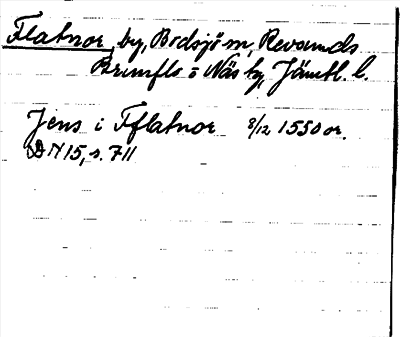 Flatnor by, Bodsjö m, Revsunds
Brunflo o Näs tg, Jämtl. l.
Jens i Fflatnor 8/12 1550 or.
DN 15, s. 711